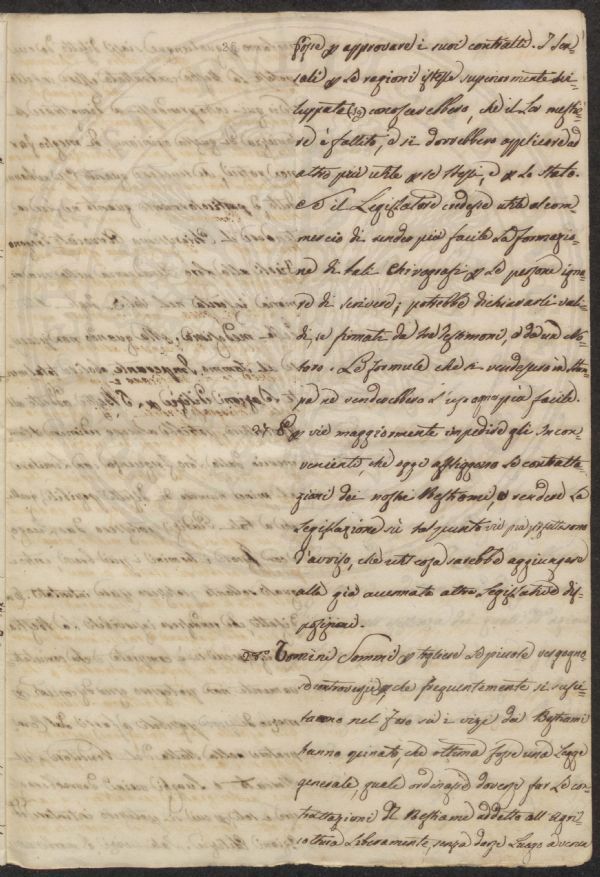 fosse p approvare i suoi contratti. I Sen-
sali p le ragioni istesse superiormente svi-
luppate (19) conoscerebbero, che il Lor mestie-
re è fallito, e si dovrebbero applicare ad
altro più utile p se stessi, e p lo Stato.
Se il Legislatore credesse utile al com-
mercio di render più facile la formazio-
ne di tali Chirografi p le persone igna-
re di scrivere; potrebbe dichiararli vali-
di, se firmati da tre Testimoni, o da un No-
taro. Le formule che si vendessero in stam-
pa ne renderebbero l'uso più facile.
23. P vie maggiormente impedire gli Incon-
venienti, che oggi affliggono le contratta-
zioni dei nostri Bestiami, e rendere la
Legislazione su tal punto vie più sono
d'avviso, che util cosa sarebbe aggiungere
alle già accennate altre Legislative dis-
posizioni.
24. Uomini sommi p togliere le piccole vergogno-
se controversie, che frequentemente si susci-
tano nel Foro su i vizi dei Bestiami
hanno opinato, che ottima fosse una Legge
generale, quale ordinasse doversi far le con-
trattazioni di Bestiame addetto all'Agri-
coltura liberamente, senza darsi luogo a veruna